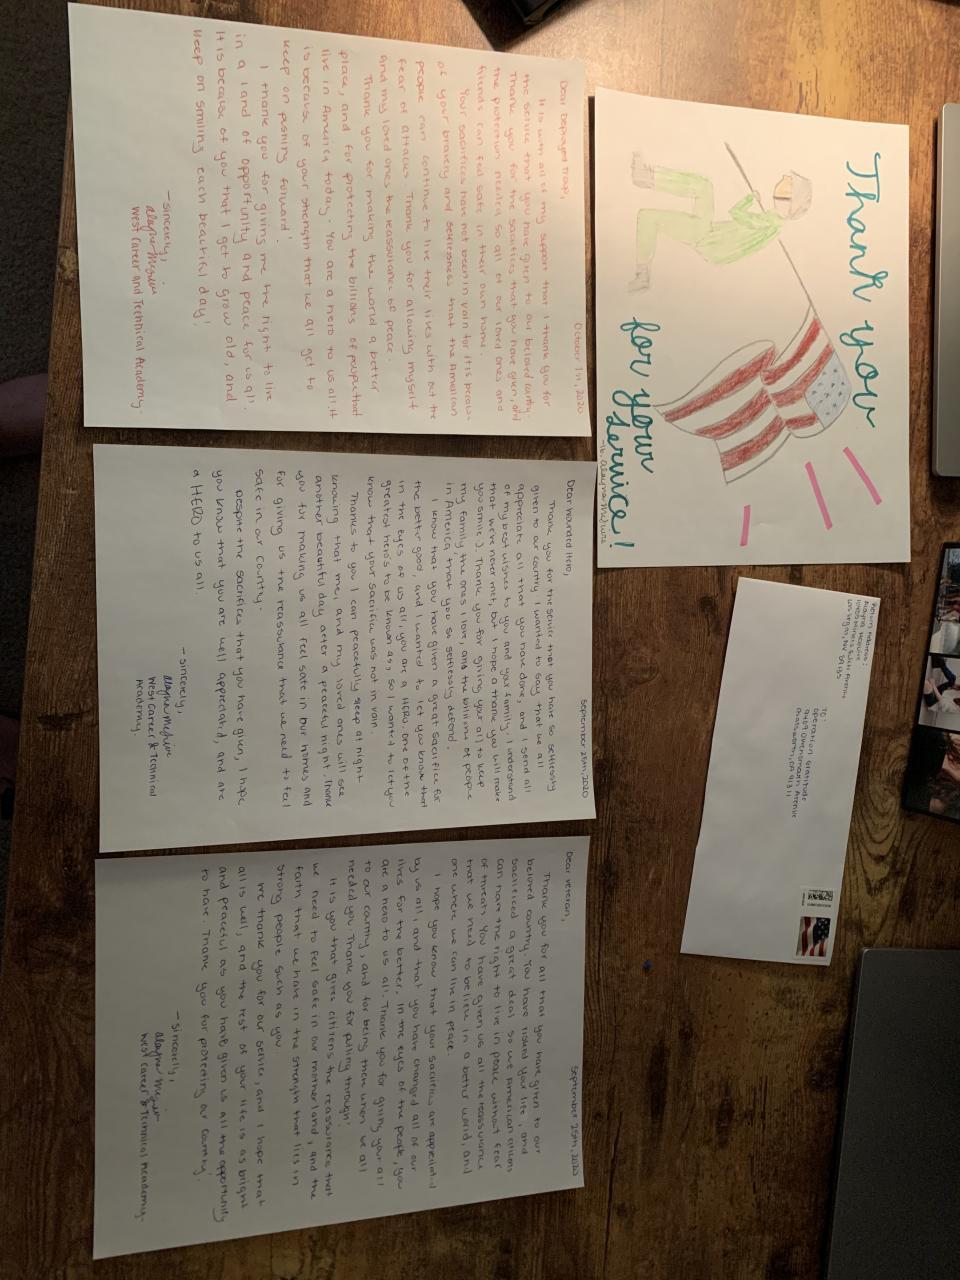 Thank you
for your
service!
-by: Alayna McGuire
October 1st, 2020
Dear Deployed Troop,
It is with all of my support that I thank you for
the service that you have given to our beloved country.
Thank you for the sacrifices that you have given, and
the protection needed so all of our loved ones and
friends can feel safe in their own home.
Your sacrifices have not been in vain for it is because
of your bravery and selflessness that the American
people can continue to live their lives with out the
fear of attacks. Thank you for allowing myself
and my loved ones the reassurance of peace.
Thank you for making the world a better
place, and for protecting the billions of people that
live in America today. You are a hero to us all. It
is because of your strength that we all get to
keep on pushing forward!
I thank you for giving me the right to live
in a land of opportunity and peace for us all.
It is because of you that I get to grow old, and
keep on smiling each beautiful day!
-sincerely,
West Career and Technical Academy
September 25th, 2020
Dear Wounded Hero,
Thank you for the service that you have so selflessly
given to our country. I wanted to say that we all
appreciate all that you have done, and I send all
of my best wishes to you and your family. I understand
that we've never met, but I hope a thank you will make
you smile :). Thank you for giving your all to keep
my family, the ones I love, and the billions of people
in America, that you so selflessly defend.
I know that you have given a great sacrifice for
the better good, and I wanted to let you know that
in the eyes of us all, you are a HERO, one of the
greatest hero's to be known as, so I wanted to let you
know that your sacrifice was not in vain.
Thanks to you I can peacefully sleep at night
knowing that me, and my loved ones will see
another beautiful day after a peaceful night. Thank
you for making us all feel safe in our homes and
for giving us the reassurance that we need to feel
safe in our county.
Despite the sacrifices that you have given, I hope
you know that you are well appreciated, and are
a HERO to us all.
-sincerely,
West Career & Technical
Academy.
September 25th, 2020
Dear Veteran,
Thank you for all that you have given to our
beloved country. You have risked your life, and
sacrificed a great deal so we American citizens
can have the right to live in peace without fear
of threats. You have given us all the reassurance
that we need to believe in a better world, and
one where we can live in peace.
I hope you know that your sacrifices are appreciated
by us all, and that you have changed all of our
lives for the better. In the eyes of the people, you
are a hero to us all. Thank you for giving your all
to our country, and for being there when we all
needed you. Thank you for pulling through!
It is you that gives citizens the reassurance that
we need to feel safe in our motherland, and the
faith that we have in the strength that lies in
strong people such as you.
We thank you for our service, and I hope that
all is well, and the rest of your life is as bright
and peaceful as you have given us all the opportunity
to have. Thank you for protecting our country!
-sincerely,
West Career & Technical Academy.
Return Address:
Alayna McGuire
Las Vegas, NV
TO:
Operation Gratitude
9409 Owensmouth Avenue
Chatsworth, CA 91311